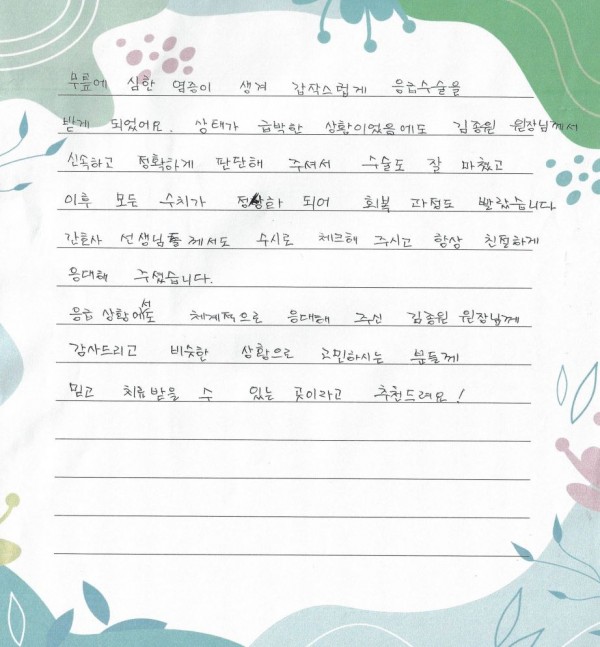 무릎에 심한 염증이 생겨 갑작스럽게 응급수술을
받게 되었어요. 상태가 급박한 상황이었음에도 김종원 원장님께서
신속하고 정확하게 판단해 주셔서 수술도 잘 마쳤고
이후 모든 수치가 정상화 되어 회복 과정도 빨랐습니다
간호사 선생님들께서도 수시로 체크해 주시고 항상 친절하게
응대해 주셨습니다.
응급 상황에서도 체계적으로 응대해 주신 김종원 원장님께
감사드리고 비슷한 상황으로 고민하시는 분들께
믿고 치료받을 수 있는 곳이라고 추천드려요!